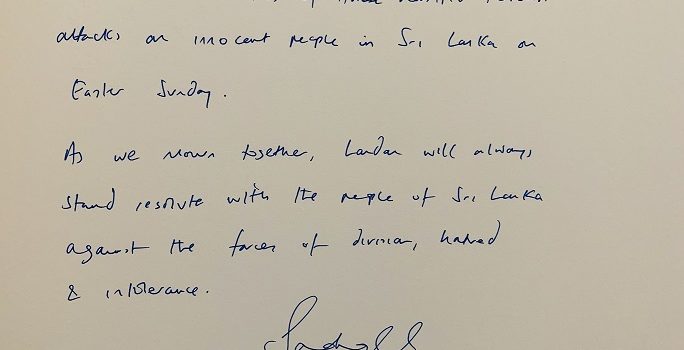 attacks on innocent people in Sri Lanka on
Easter Sunday.
As we mourn together, London will always
stand resolute with the people of Sri Lanka
against the forces of division, hatred
& intolerance.